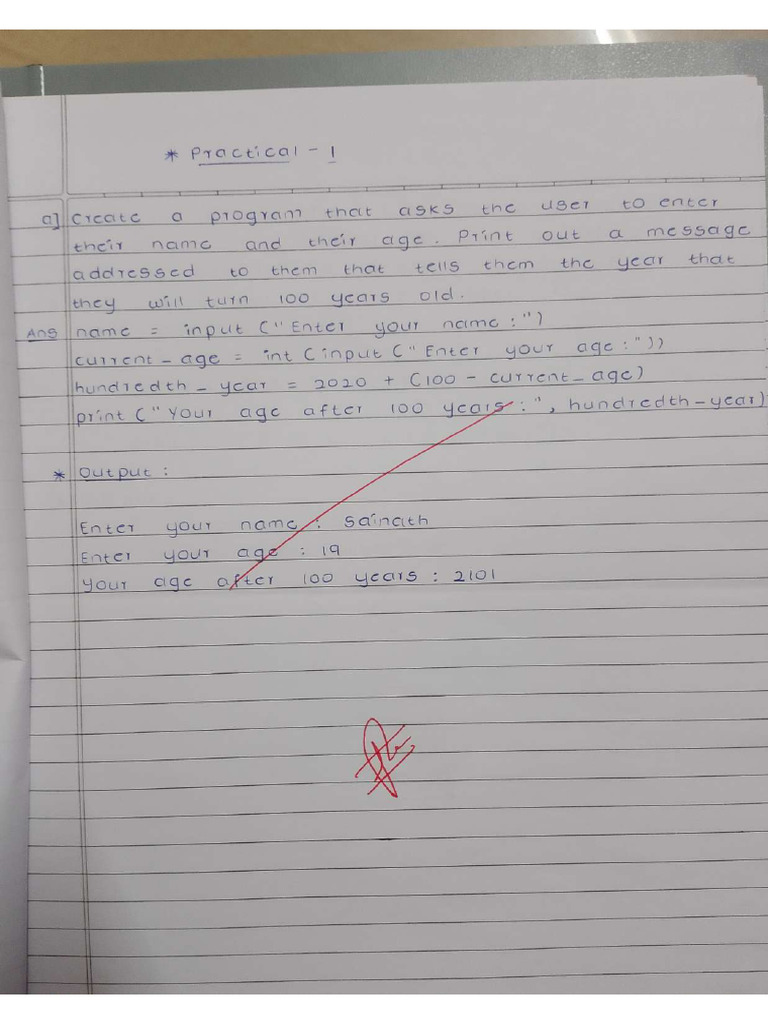 * Practical - 1
a] Create a program that asks the user to enter
their name and their age. Print out a message
addressed to them that tells them the year that
they will turn 100 years old.
Ans name = input ("Enter your name :")
current_age = int (input ("Enter your age :"))
hundredth_year = 2020 + (100 - current_age)
print ("Your age after 100 years :", hundredth_year)
* Output :
Enter your name : Sainath
Enter your age : 19
Your age after 100 years : 2101